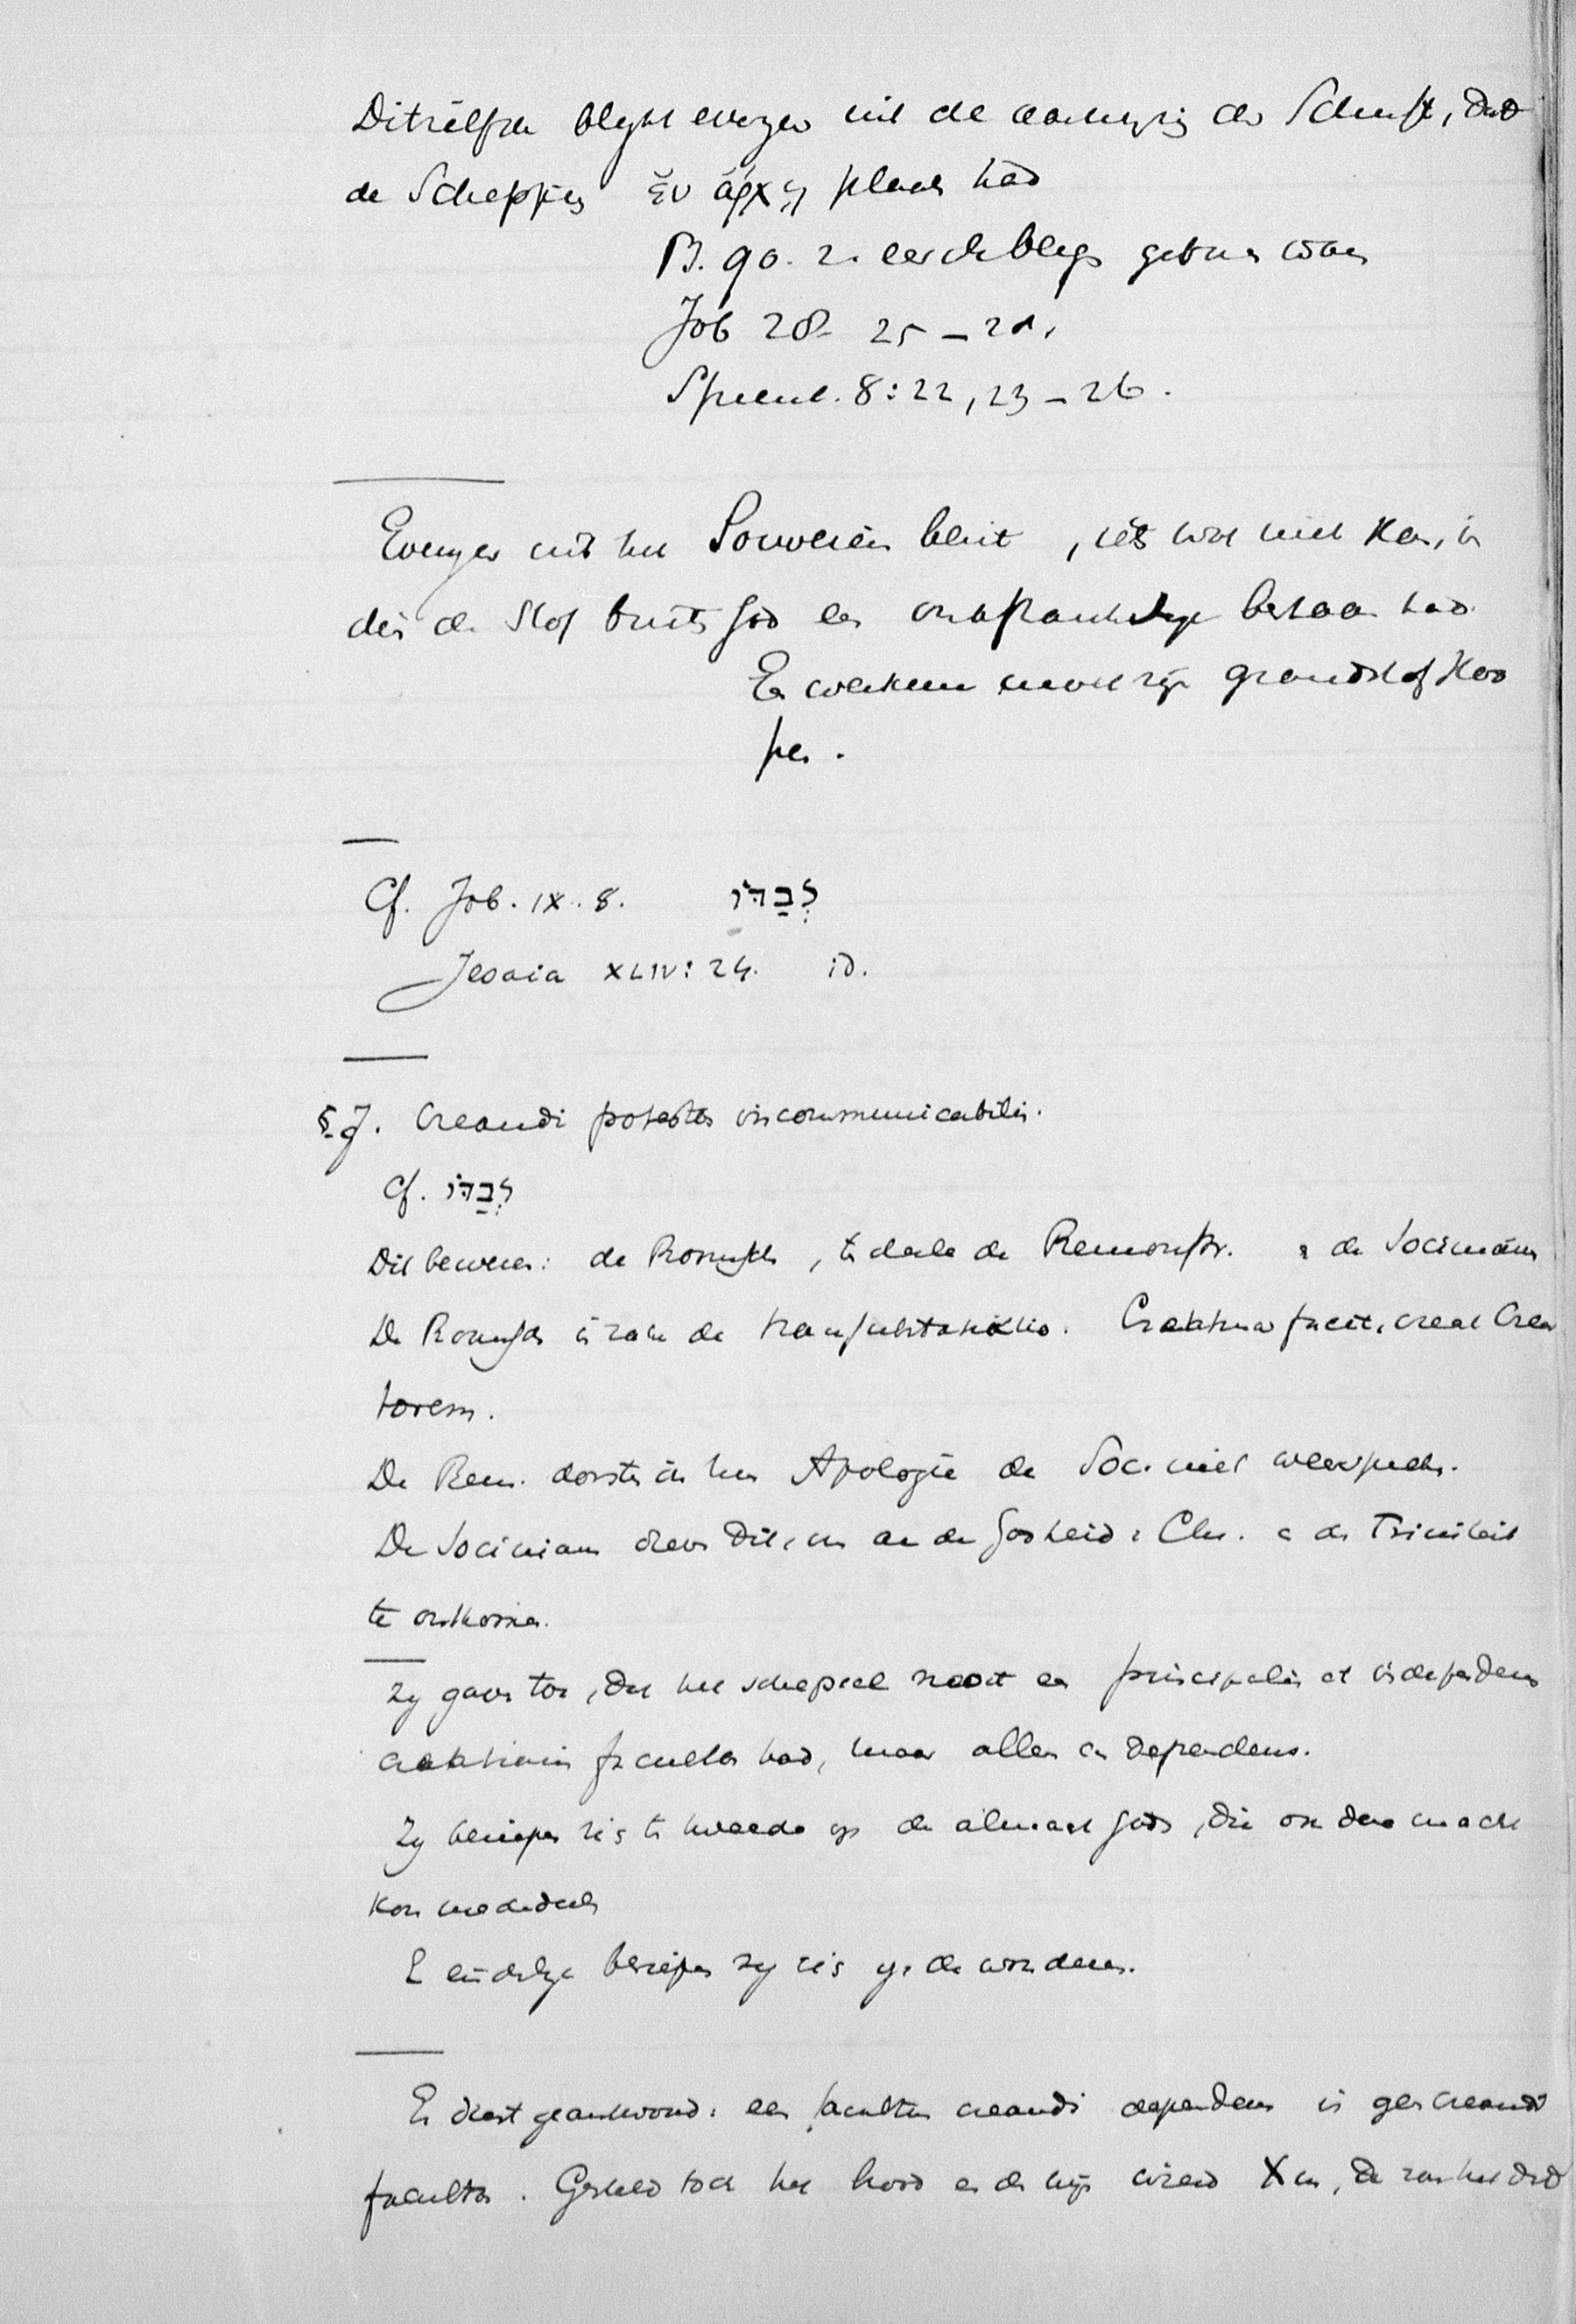 Ditzelfde blykt evenzeer uit de aanwyzing der Schrift, dat
de Schepping ἐν ἀρχῇ plaats had
Ps. 90. 2. eer de bergen geboren waren
Job 28. 25 – 28.
Spreuk. 8:22, 23 – 26.
Evenzeer uit het Souverein , iets wat niet kan, in
dien de Stof buiten God een onafhankelyk bestaan had.
En werkman moet zijn grondstof koo
pen.
Cf. Job. IX. 8. לְבַדּוֹ
Jesaia XLIV: 24. id.
§ 7. Creandi potestas incommunicabilis.
Cf. לְבַדּוֹ
Dit beweren: de Roomschen, ten deele de Remonstr. en de Socinianen
De Roomschen in zake de transsubstantiatio. Creatura facit, creat Crea
torem.
De Rem. dorsten in hun Apologie de Soc. niet weerspreken.
De Socinianen dreven dit, om aan de Godheid v. Chr. en de Triniteit
te ontkomen.
Zy gaven toe, dat het schepsel nooit een principalis et independens
creationis facultas had, maar alleen een dependens.
Zy beriepen zich ten tweede op de almacht Gods, die ook deze macht
kon mededeelen
Eindelyk beriepen zy zich op de wonderen.
Er dient geantwoord: een facultas creandi dependens is geen creandi
facultas. Gesteld toch het hoofd en de wijn wierd X en, de zou het dat